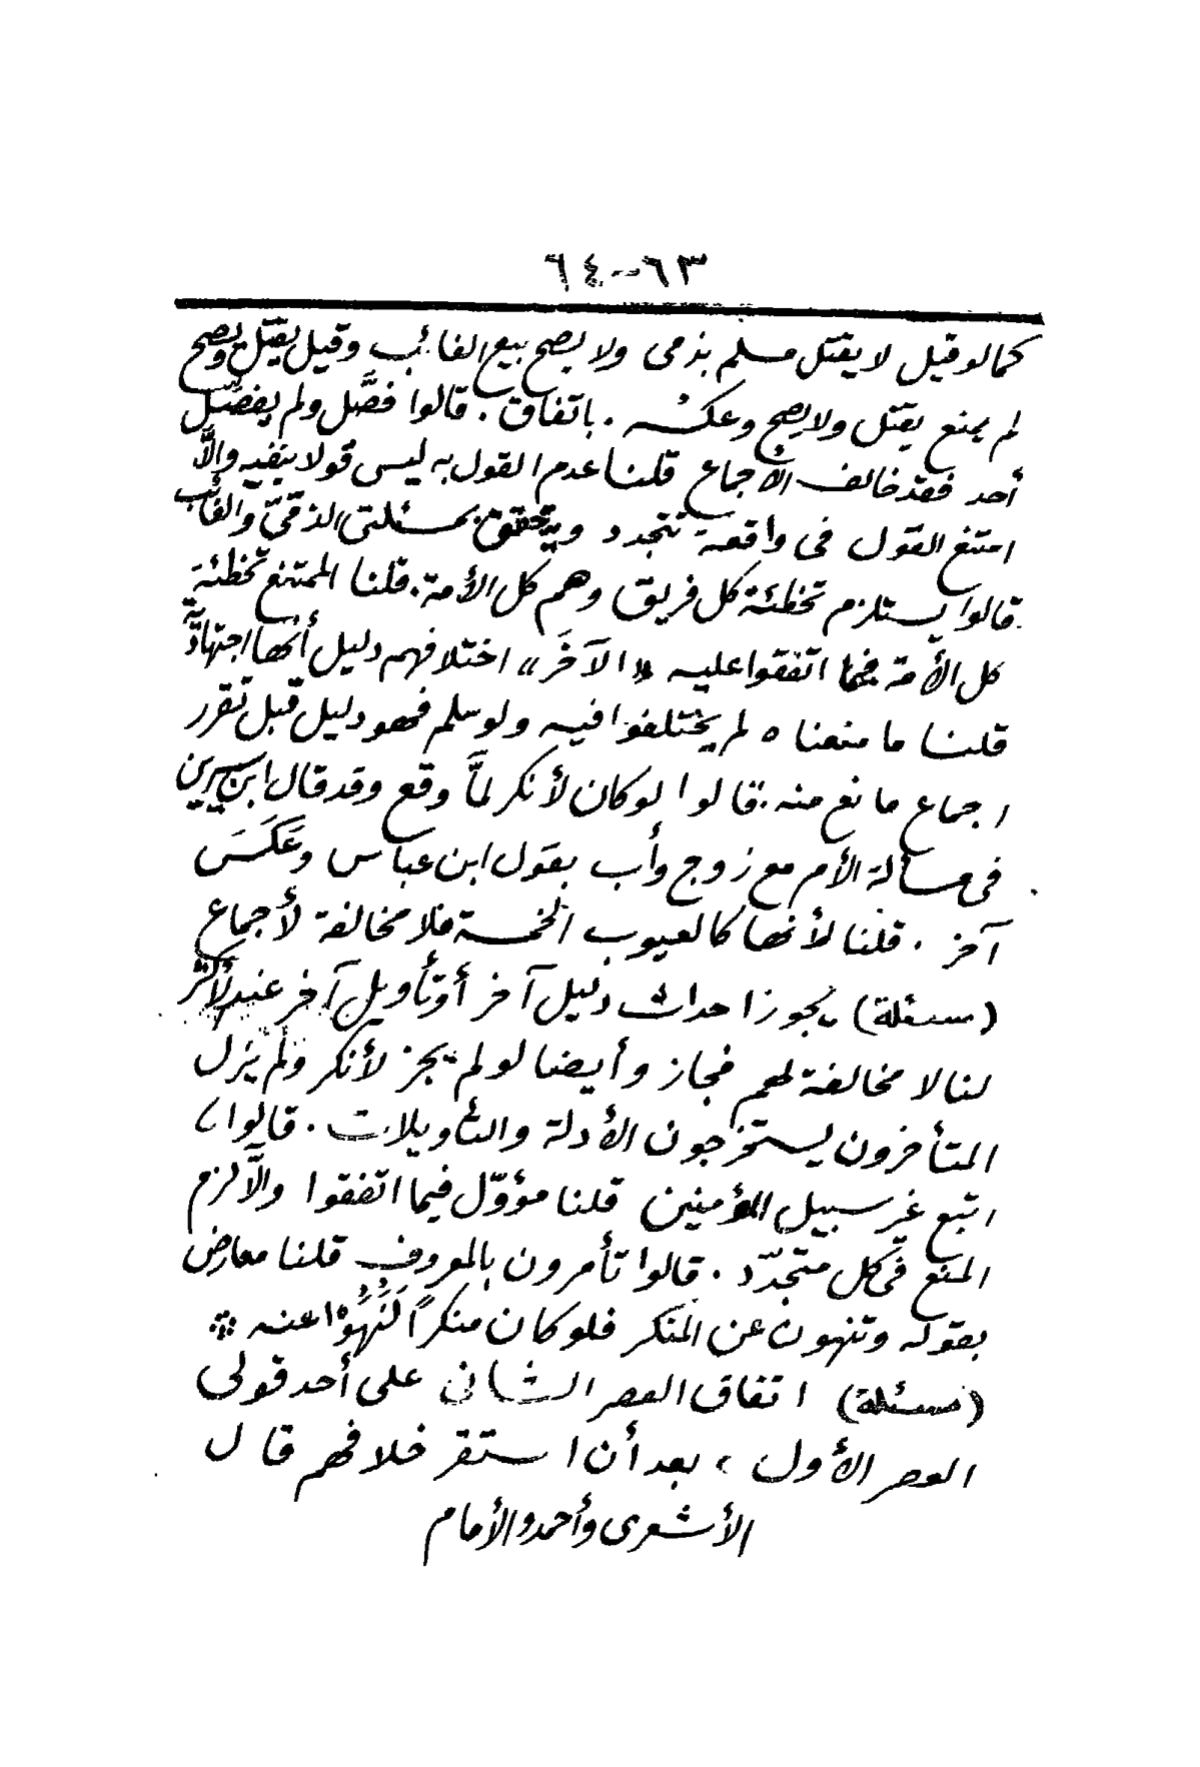 ٦٣-٦٤
كما لو قيل لا يقتل مسلم بذمى ولا يصح بيع الغائب وقيل يقتل ويصح
لم يمنع يقتل ولا يصح وعكسه . باتفاق . قالوا فصَّل ولم يفصّل
أحد فقد خالف الأجماع قلنا عدم القول به ليس قولا بنفيه والَّا
امتنع القول فى واقعة تتجدد ويتحقق بمسئلتى الذمّىّ والغائب
قالوا يستلزم تخطئة كل فريق وهم كل الأمة . قلنا الممتنع تخطئة
كل الأمة فيما اتفقوا عليه «الآخَر» اختلافهم دليل أنها اجتهاديَّة
قلنا ما منعناه لم يختلفوا فيه ولو سلم فهو دليل قبل تقرر
اجماع مانع منه . قالوا لو كان لأنكر لمَّا وقع وقد قال ابن سيرين
فى مسألة الأم مع زوج وأب بقول ابن عباس وعَكَسَ
آخر . قلنا لأنها كالعيوب الخمسة فلا مخالفة لأجماع
(مسئلة) يجوز احداث دليل آخر أو تأويل آخر عند الأكثر
لنا لا مخالفة لهم فجاز وأيضا لو لم يجز لأنكر ولم يزل
المتأخرون يستخرجون الأدلة والتأويلات . قالوا
اتبع غير سبيل المؤمنين قلنا مؤوّل فيما اتفقوا والَّا لزم
المنع فى كل متجدّد . قالوا تأمرون بالمعروف قلنا معارض
بقوله وتنهون عن المنكر فلو كان منكراً لَنُهُوْا عنه
(مسئلة) اتفاق العصر الثانى على أحد قولى
العصر الأول ، بعد أن استقر خلافهم قال
الأشعرى وأحمد والأمام